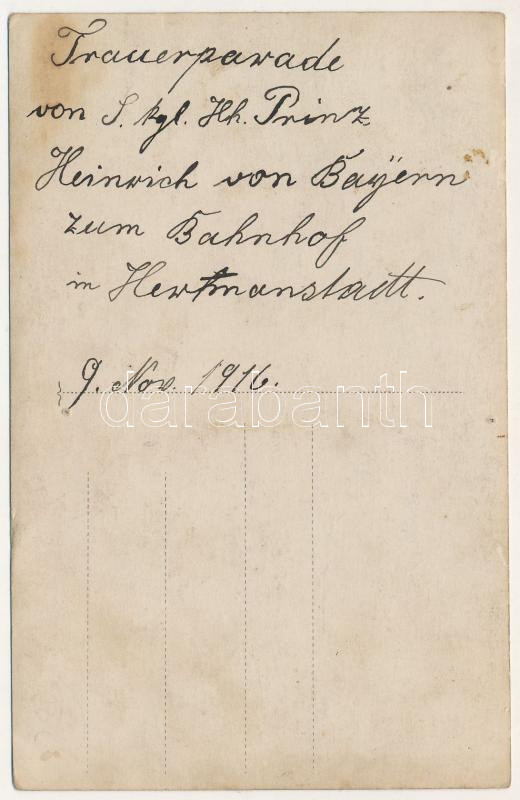 Trauerparade
von S. kgl. Hh. Prinz
Heinrich von Bayern
zum Bahnhof
in Hertmanstadtt.
9. Nov. 1916.
darabanth